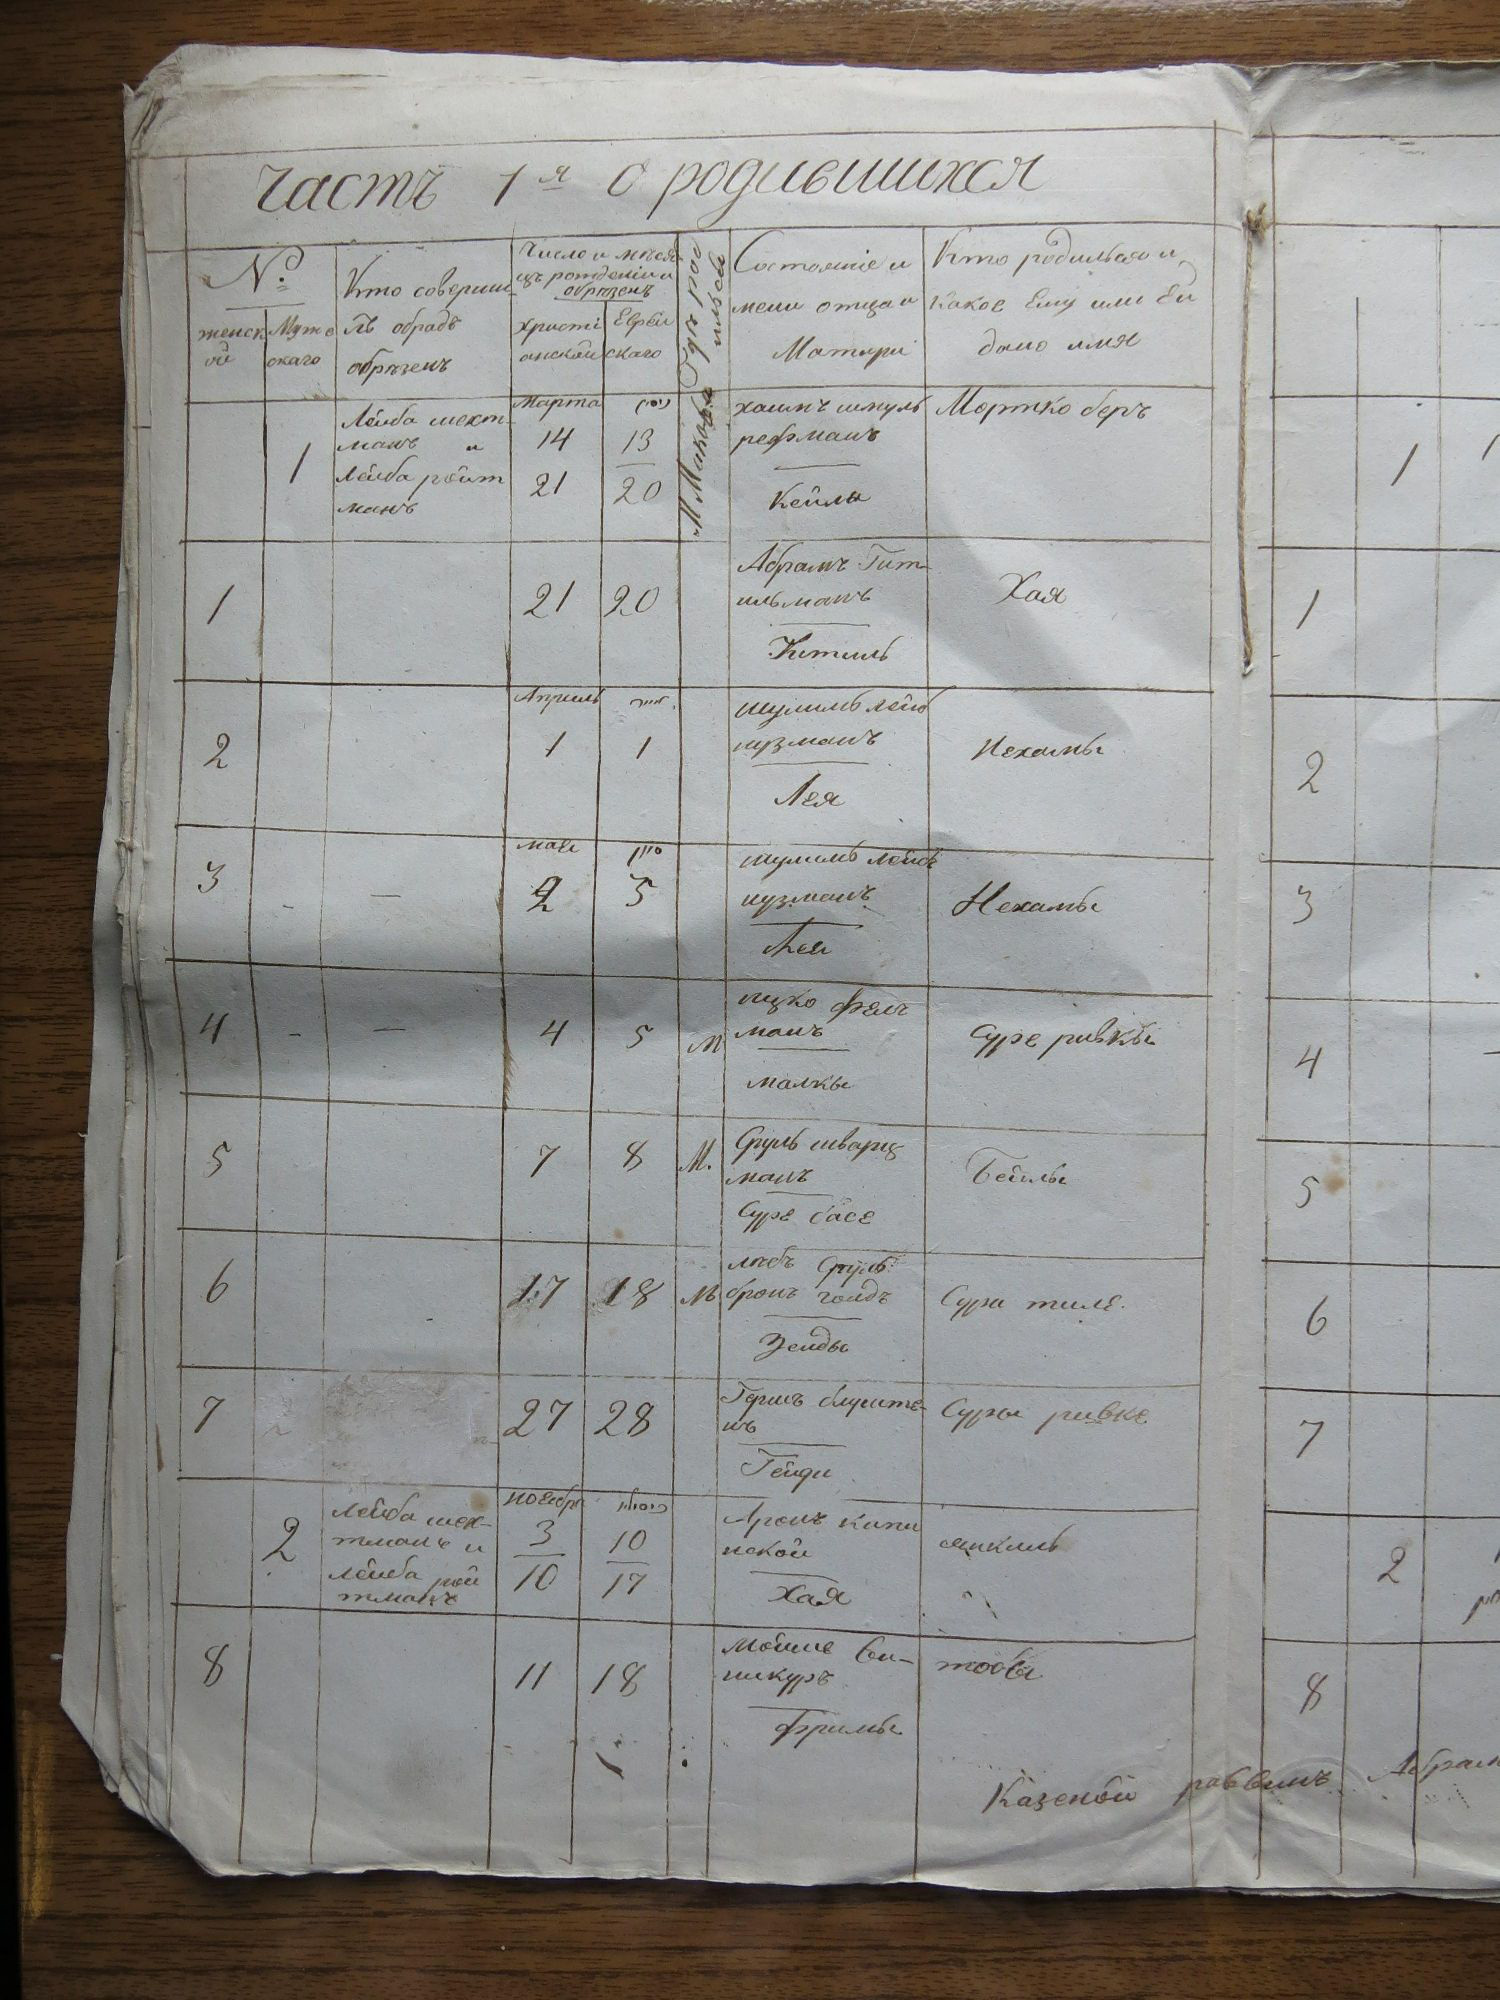 Часть 1я о родившихся
№
женск
ой
Муже
скаго
Кто соверши
лъ обрадъ
обрѣзенъ
Число и мѣся
цъ рожденіи и
обрѣзенъ
христі
анской
Еврей
скаго
Состояніе и
мени отца и
Матери
Кто родилься и
какое Ему или Ей
дано имя
1
Лейба шехт-
манъ и
Лейба ройт
манъ
Марта
14
21
ניסן
13
20
хаимъ шмуль
рефманъ
Кейла
Мортко беръ
1
21
20
Абрамъ Гит-
ильманъ
Китиль
Хая
2
Априль
1
אייר
1
шулимъ лейб
нузманъ
Лея
Нехамы
3
-
-
мая
2
סיון
3
шулимъ лейбъ
нузманъ
Лея
Нехамы
4
-
-
4
5
М
ицко Фел
манъ
малкы
Суре ривкы
5
7
8
М.
Сруль шварц
манъ
Суре басе
Бейлы
6
17
18
М
лейбъ Сруль
бронъ голдъ
Зелды
Сура тиле.
7
27
28
Гершъ блуште-
нъ
Гейди
Суры ривке
2
Лейба шех-
тманъ и
лейба рой
тманъ
ноебра
3
10
כיסליו
10
17
Аронъ кипи
нской
Хая
янкиль
8
11
18
Мойше Ви-
никуръ
Фримы
товы
Казеной раввинъ Абрам
1
1
2
3
4
5
6
7
2
8